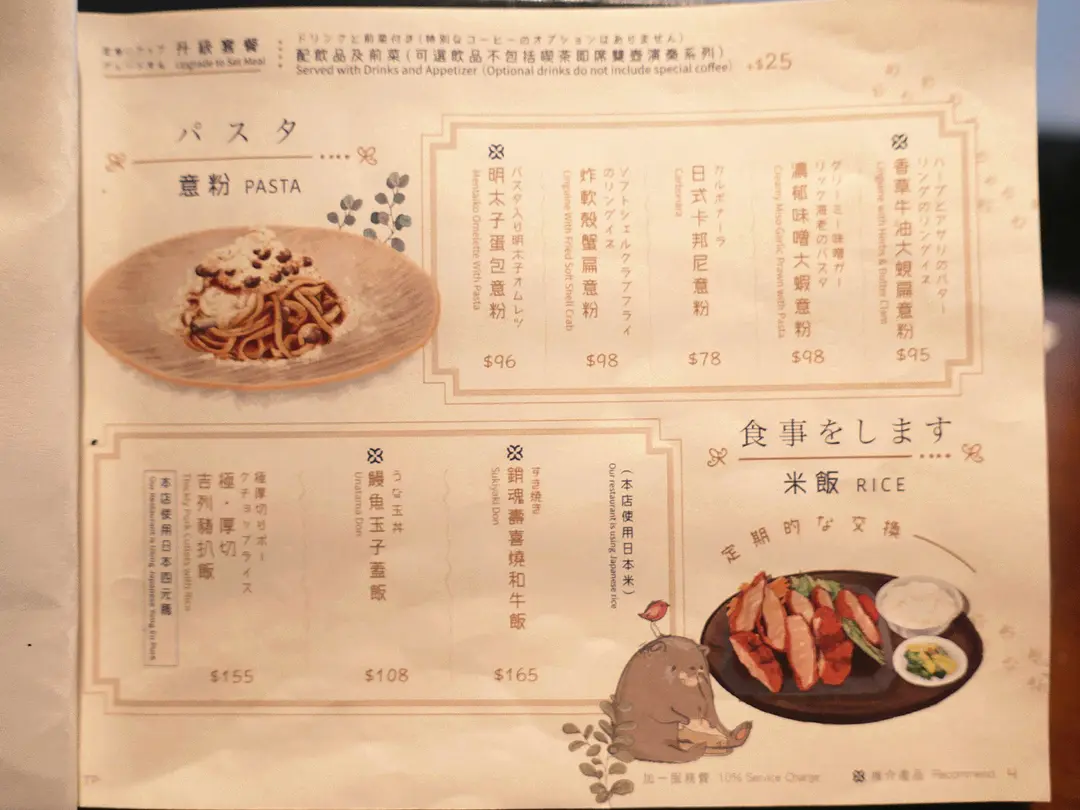 升級套餐
Upgrade to Set Meal
ドリンクと前菜付き(特別なコーヒーのオプションはありません)
配飲品及前菜(可選飲品不包括喫茶即席雙壺演奏系列)
Served with Drinks and Appetizer (Optional drinks do not include special coffee)
+$25
パスタ
意粉 PASTA
ハーブとアサリのバター
リングのリングイネ
香草牛油大蜆扁意粉
Linguine with Herbs & Butter Clam
$95
クリーミー味噌ガー
リック海老のパスタ
濃郁味噌大蝦意粉
Creamy Miso Garlic Prawn with Pasta
$98
カルボナーラ
日式卡邦尼意粉
Carbonara
$78
ソフトシェルクラブフライ
のリングイネ
炸軟殼蟹扁意粉
Linguine With Fried Soft Shell Crab
$98
パスタ入り明太子オムレツ
明太子蛋包意粉
Mentaiko Omelette With Pasta
$96
食事をします
米飯 RICE
定期的な交換
(本店使用日本米)
Our restaurant is using Japanese rice
すき焼き
銷魂壽喜燒和牛飯
Sukiyaki Don
$165
うな玉丼
鰻魚玉子蓋飯
Unatama Don
$108
極厚切りポー
クチョップライス
極・厚切
吉列豬扒飯
Thickly Pork Cutlets with Rice
本店使用日本四元豚
Our Restaurant is Using Japanese Yong En Pork
$155
加一服務費 10% Service Charge
推介產品 Recommend 4